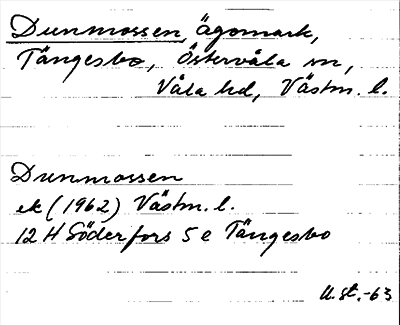 Dunmossen, ägomark,
Tängesbo, Östervåla sn,
Våla hd, Västm. l.
Dunmossen
ek (1962) Västm. l.
12 H Söderfors 5 e Tängesbo
U.St.-63